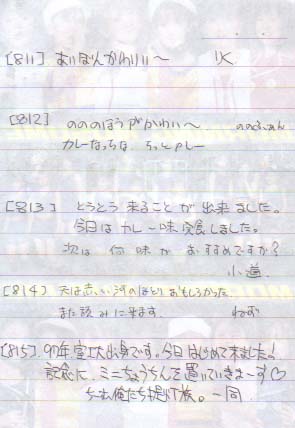 [811] あいぼんかわいい〜 リK
[812] のののほうがかわいい〜 ののふぁん
カレーなっちな ちっとカレー
[813] とうとう来ることが出来ました。
今日はカレー味完食しました。
次は何味がおすすめですか?
小道
[814] 天は赤い河のほとりおもしろかった。
また読みに来ます。 ねず
[815] 97年室工大出身です。今日はじめて来ました!
記念に、ミニちょうちんを置いていきまーす♡
俺たち提灯族。一同